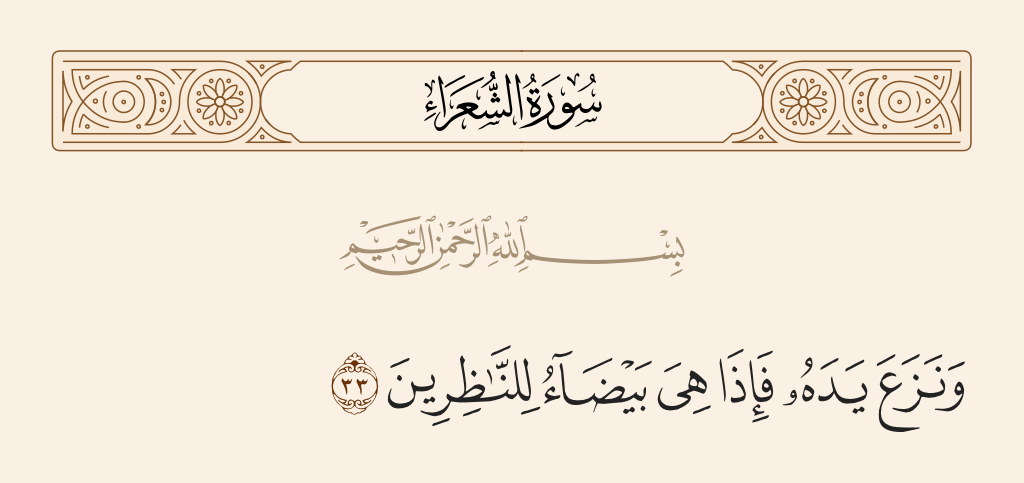 سُورَةُ الشُّعَرَاءِ
بِسْمِ ٱللَّهِ ٱلرَّحْمَٰنِ ٱلرَّحِيمِ
وَنَزَعَ يَدَهُۥ فَإِذَا هِىَ بَيْضَآءُ لِلنَّـٰظِرِينَ ٣٣